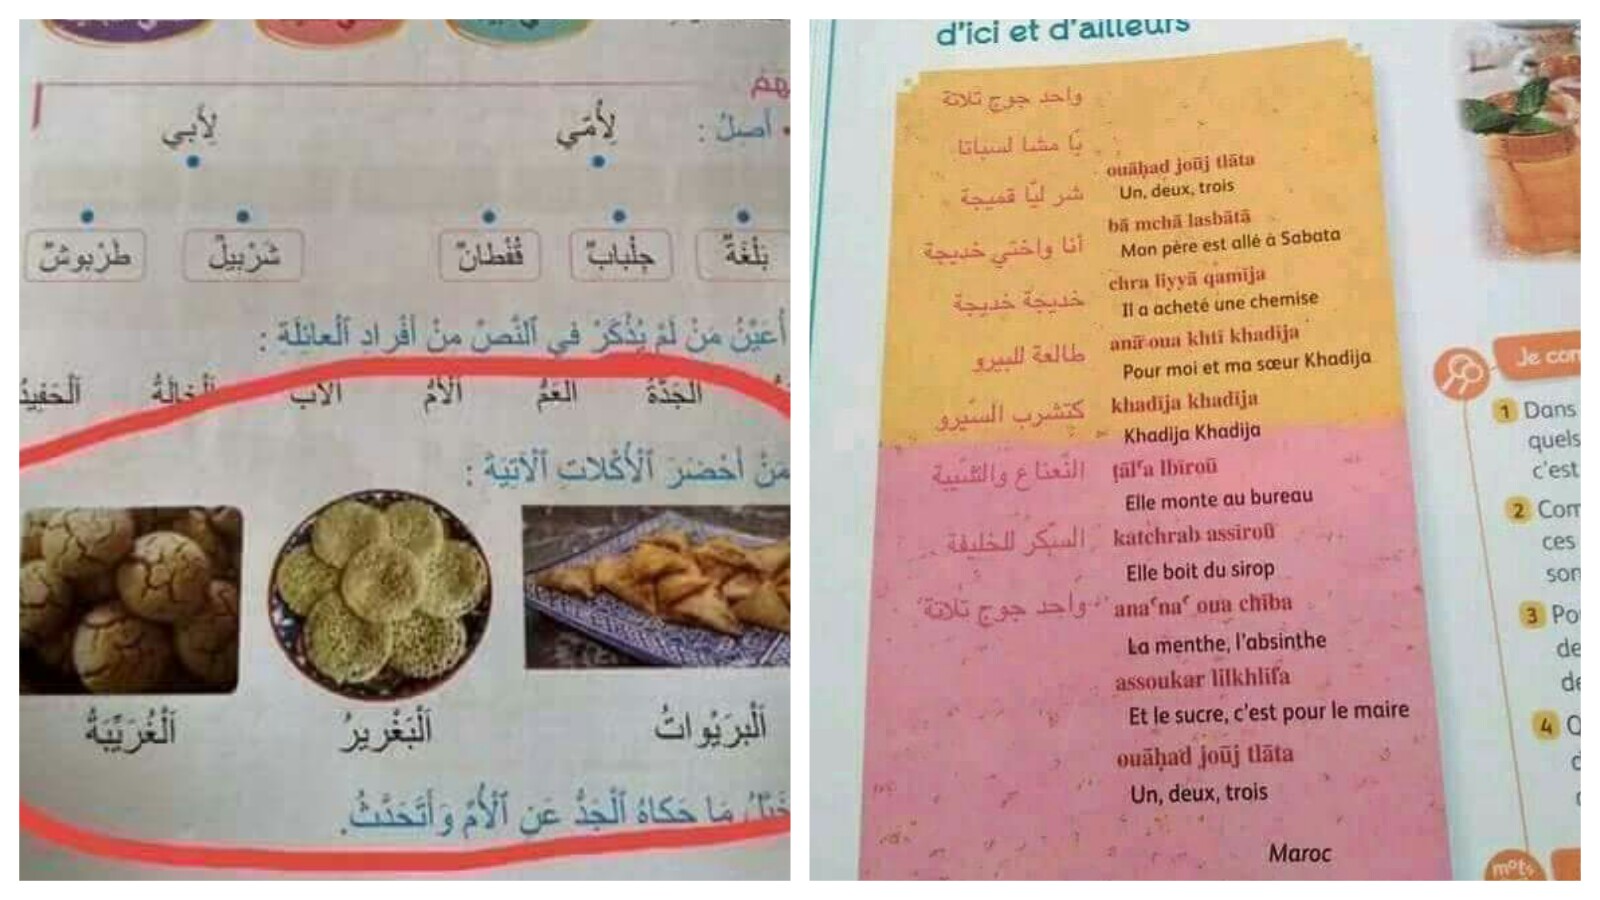 أَصِلُ :
لِأُمّي لِأَبي
بَلْغَةٌ جِلْبابٌ قُفْطانٌ شَرْبيلٌ طَرْبوشٌ
أُعَيِّنُ مَنْ لَمْ يُذْكَرْ في ٱلنَّصِّ مِنْ أَفْرادِ ٱلْعائِلَةِ :
الجَدَّةُ العَمُّ الْأُمُّ الْأَبُ ٱلْخالَةُ ٱلْحَفيدُ
مَنْ أَحْضَرَ ٱلْأَكَلاتِ ٱلْآتِيَةَ :
اَلْبرَيْواتُ اَلْبَغْريرُ اَلْغُرَيِّبَةُ
مَا حَكاهُ ٱلْجَدُّ عَنِ ٱلْأُمِّ وَأَتَحَدَّثُ.
d'ici et d'ailleurs
واحد جوج تلاتة
بّا مشا لسباتا
شر ليّا قميجة
أنا واختي خديجة
خديجة خديجة
طالعة للبيرو
كتشرب السّيرو
النّعناع والشّيبة
السّكّر للخليفة
واحد جوج تلاتة
ouāḥad joūj tlāta
Un, deux, trois
bā mchā lasbātā
Mon père est allé à Sabata
chra liyyā qamīja
Il a acheté une chemise
anā oua khtī khadīja
Pour moi et ma sœur Khadija
khadīja khadīja
Khadija Khadija
ṭālʿa lbīroū
Elle monte au bureau
katchrab assīroū
Elle boit du sirop
anaʿnaʿ oua chība
La menthe, l'absinthe
assoukar lilkhlīfa
Et le sucre, c'est pour le maire
ouāḥad joūj tlāta
Un, deux, trois
Maroc
Je con
1 Dans
quels
c'est
2 Com
ces
son
3 Po
de
de
4 Q
d
mots